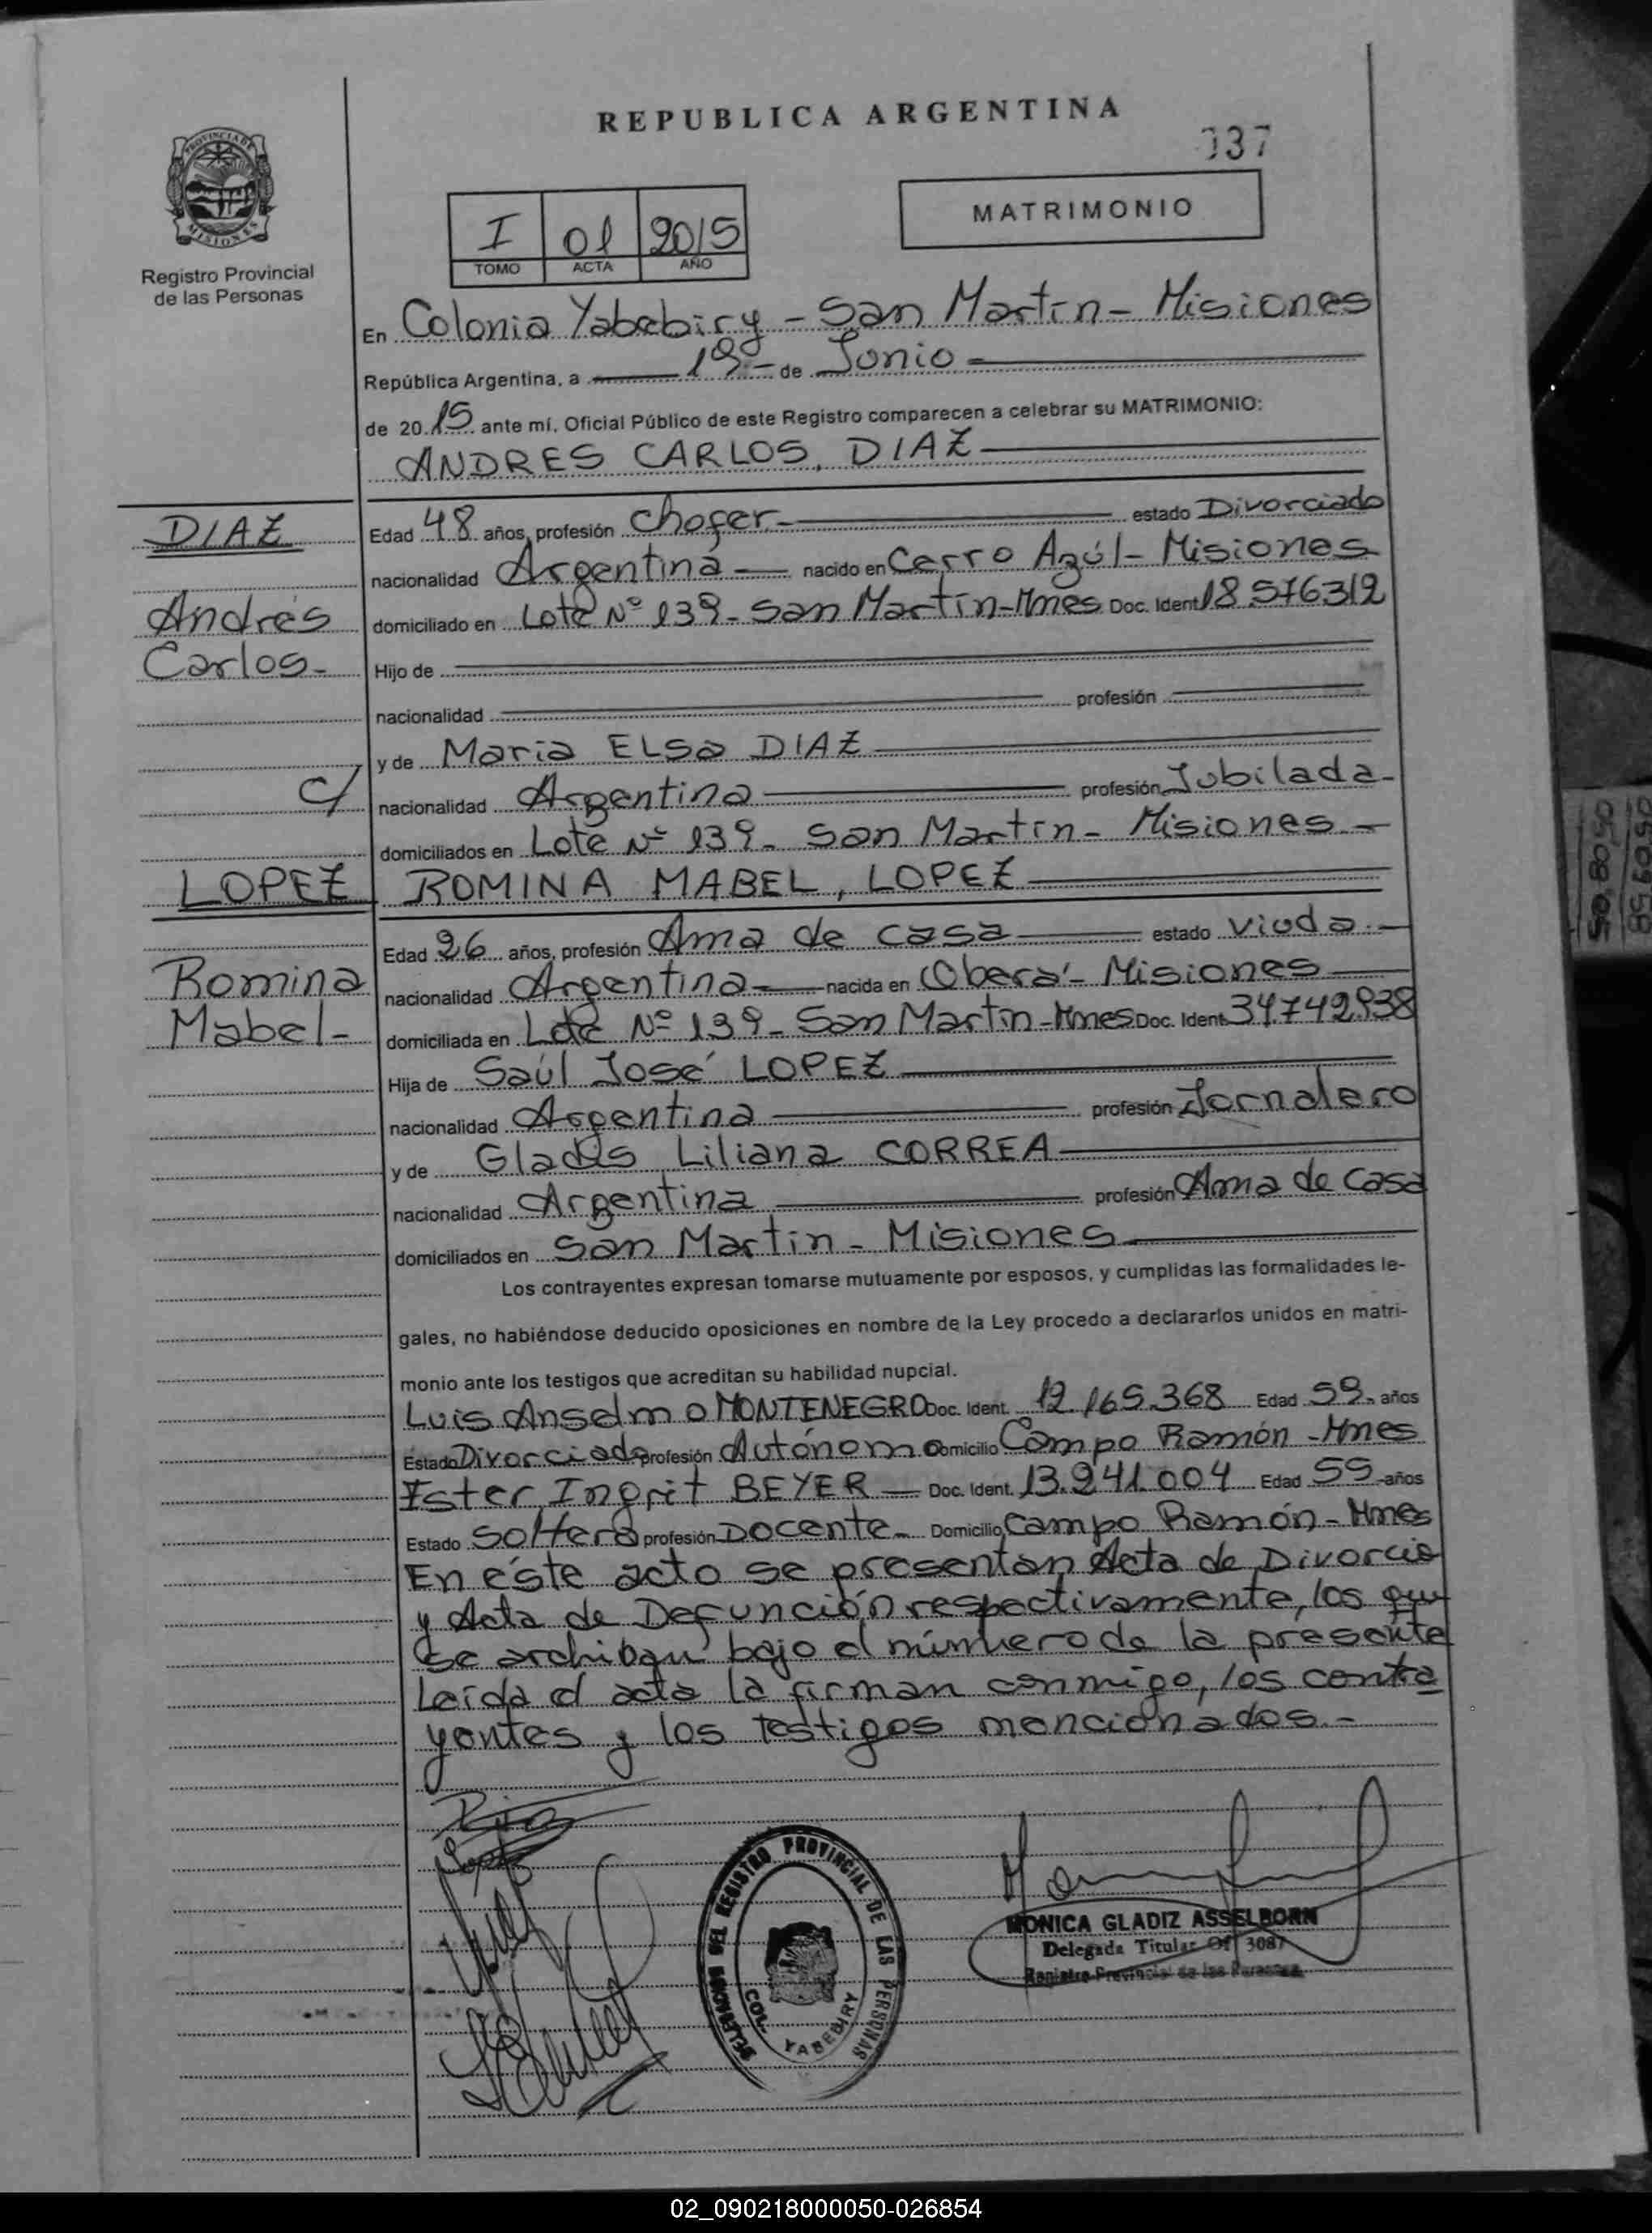 REPUBLICA ARGENTINA
037
PROVINCIA DE
MISIONES
Registro Provincial
de las Personas
I 01 2015
TOMO ACTA AÑO
MATRIMONIO
En Colonia Yabebiry - San Martín - Misiones
República Argentina, a 19 - de Junio
de 2015 ante mí, Oficial Público de este Registro comparecen a celebrar su MATRIMONIO:
ANDRES CARLOS, DIAZ
DIAZ
Edad 48 años, profesión Chofer estado Divorciado
nacionalidad Argentina nacido en Cerro Azúl - Misiones
Andrés
domiciliado en Lote Nº 139 - San Martín - Mnes Doc. Ident 18.576312
Carlos -
Hijo de
nacionalidad profesión
y de Maria ELSa DIAZ
C/
nacionalidad Argentina profesión Jubilada -
domiciliados en Lote Nº 139 - San Martín - Misiones -
LOPEZ ROMINA MABEL, LOPEZ
Edad 26 años, profesión Ama de casa estado Viuda. -
Romina
nacionalidad Argentina nacida en Oberá - Misiones
Mabel -
domiciliada en Lote Nº 139 - San Martín - Mnes Doc. Ident 34742938
Hija de Saúl José LOPEZ
nacionalidad Argentina profesión Jornalero
y de Gladis Liliana CORREA
nacionalidad Argentina profesión Ama de casa
domiciliados en San Martin - Misiones
Los contrayentes expresan tomarse mutuamente por esposos, y cumplidas las formalidades le-
gales, no habiéndose deducido oposiciones en nombre de la Ley procedo a declararlos unidos en matri-
monio ante los testigos que acreditan su habilidad nupcial.
Luis Anselmo MONTENEGRO Doc. Ident. 12.165.368 Edad 59 años
Estado Divorciado profesión Autónomo Domicilio Campo Ramón - Mnes
Ester Ingrit BEYER Doc. Ident. 13.241.004 Edad 55 años
Estado Soltera profesión Docente Domicilio Campo Ramón - Mnes
En éste acto se presentan Acta de Divorcio
y Acta de Defunción respectivamente, los que
se archiban bajo el número de la presente
Leída el acta la firman conmigo, los contra
yentes y los testigos mencionados. -
DELEGACION DEL REGISTRO PROVINCIAL DE LAS PERSONAS
COL. YABEBIRY
MONICA GLADIZ ASSELBORN
Delegada Titular Of 3087
Registro Provincial de las Personas
02_090218000050-026854